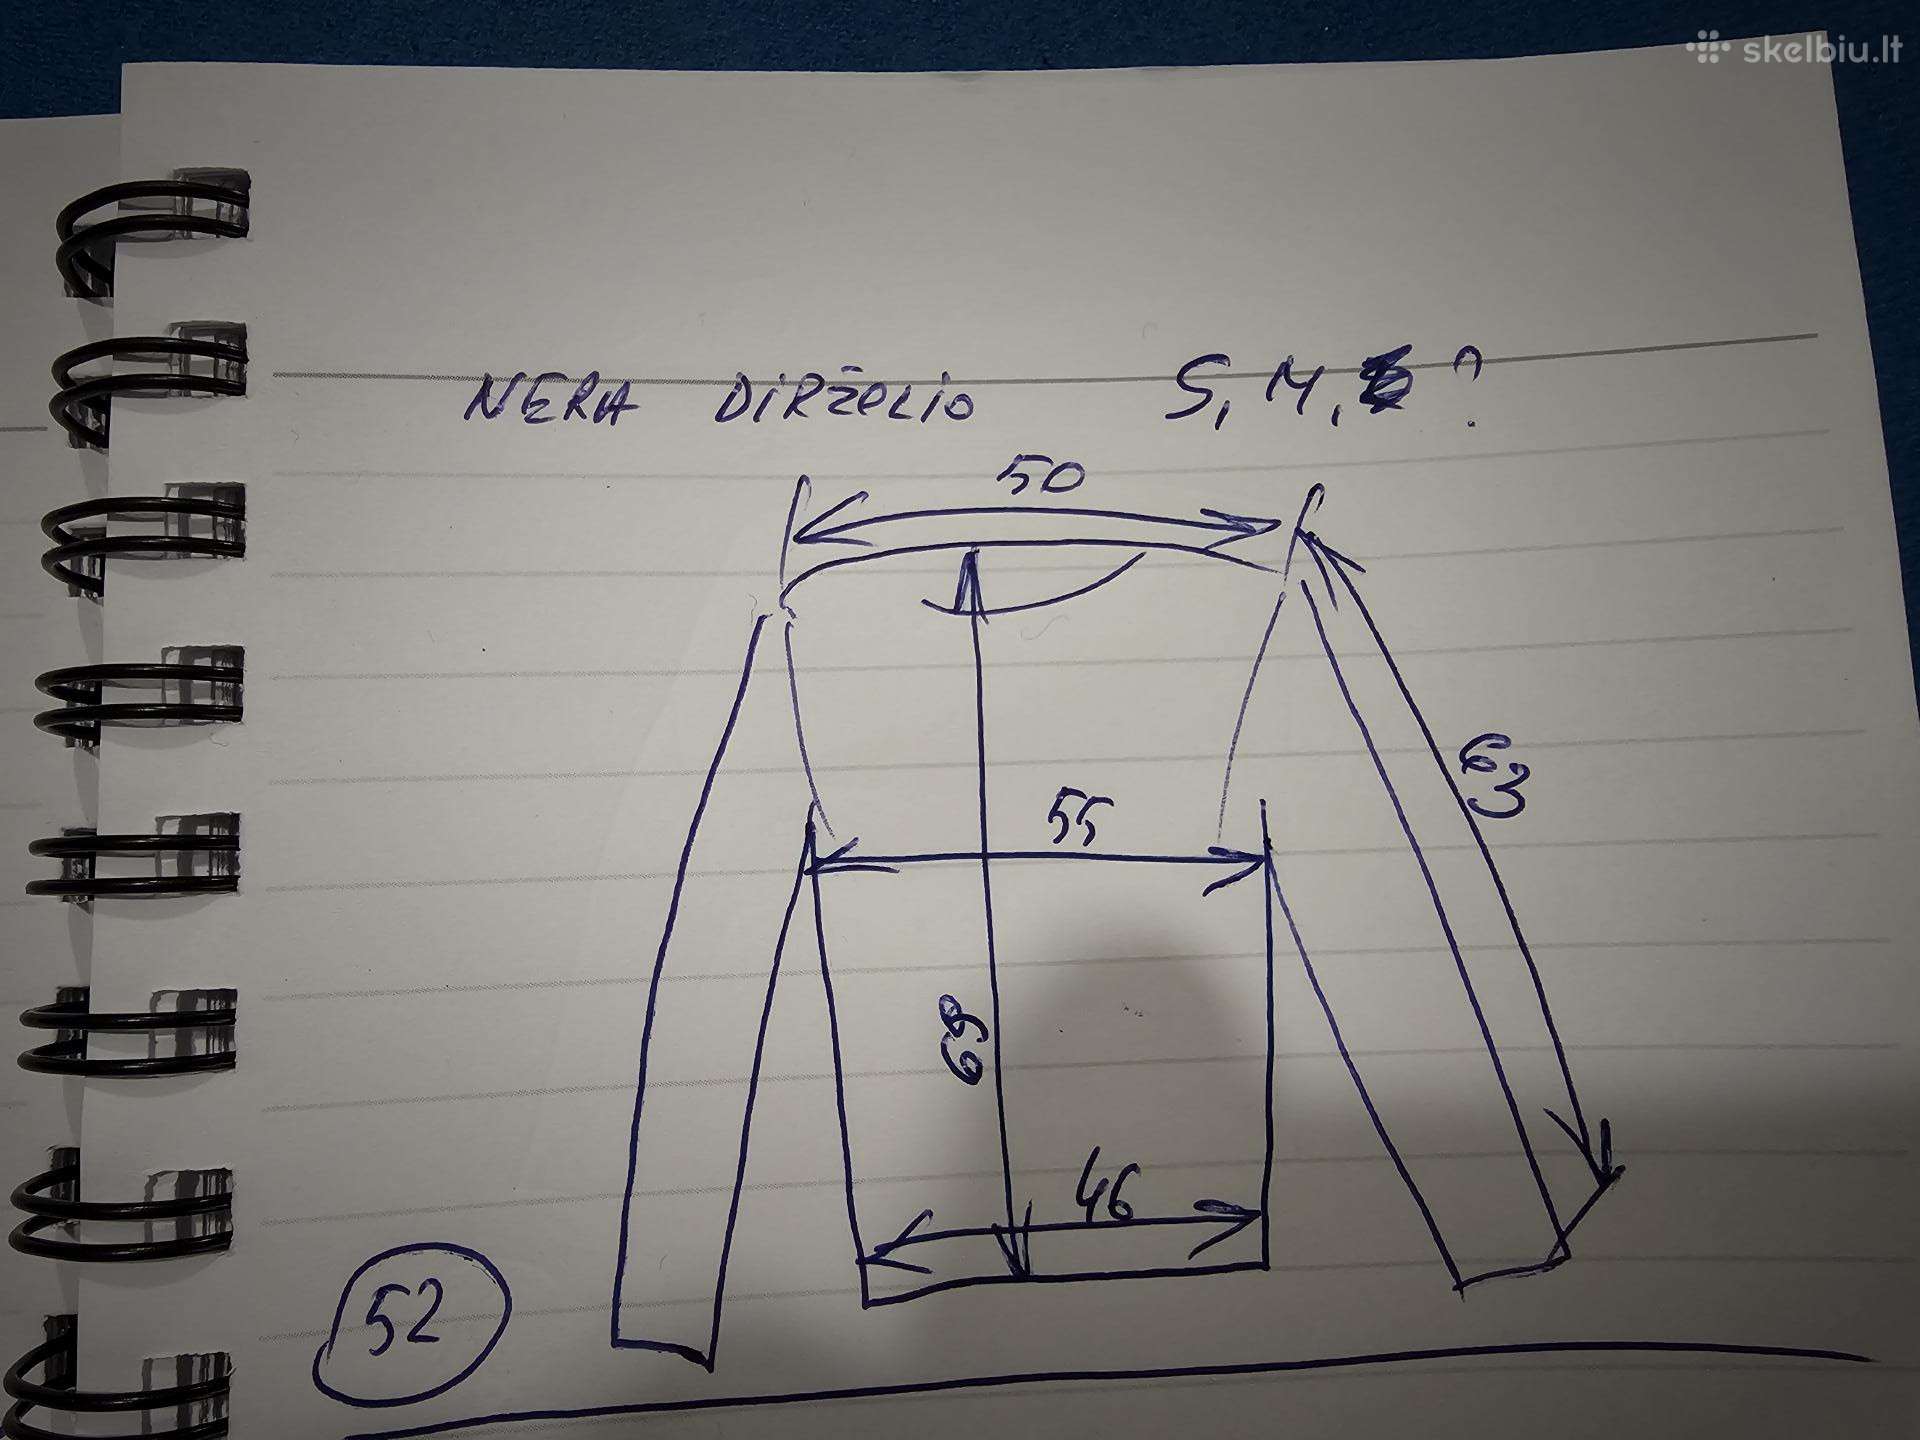 skelbiu.lt
NERA DIRŽELIO S, M, ?
50
63
55
68
46
52